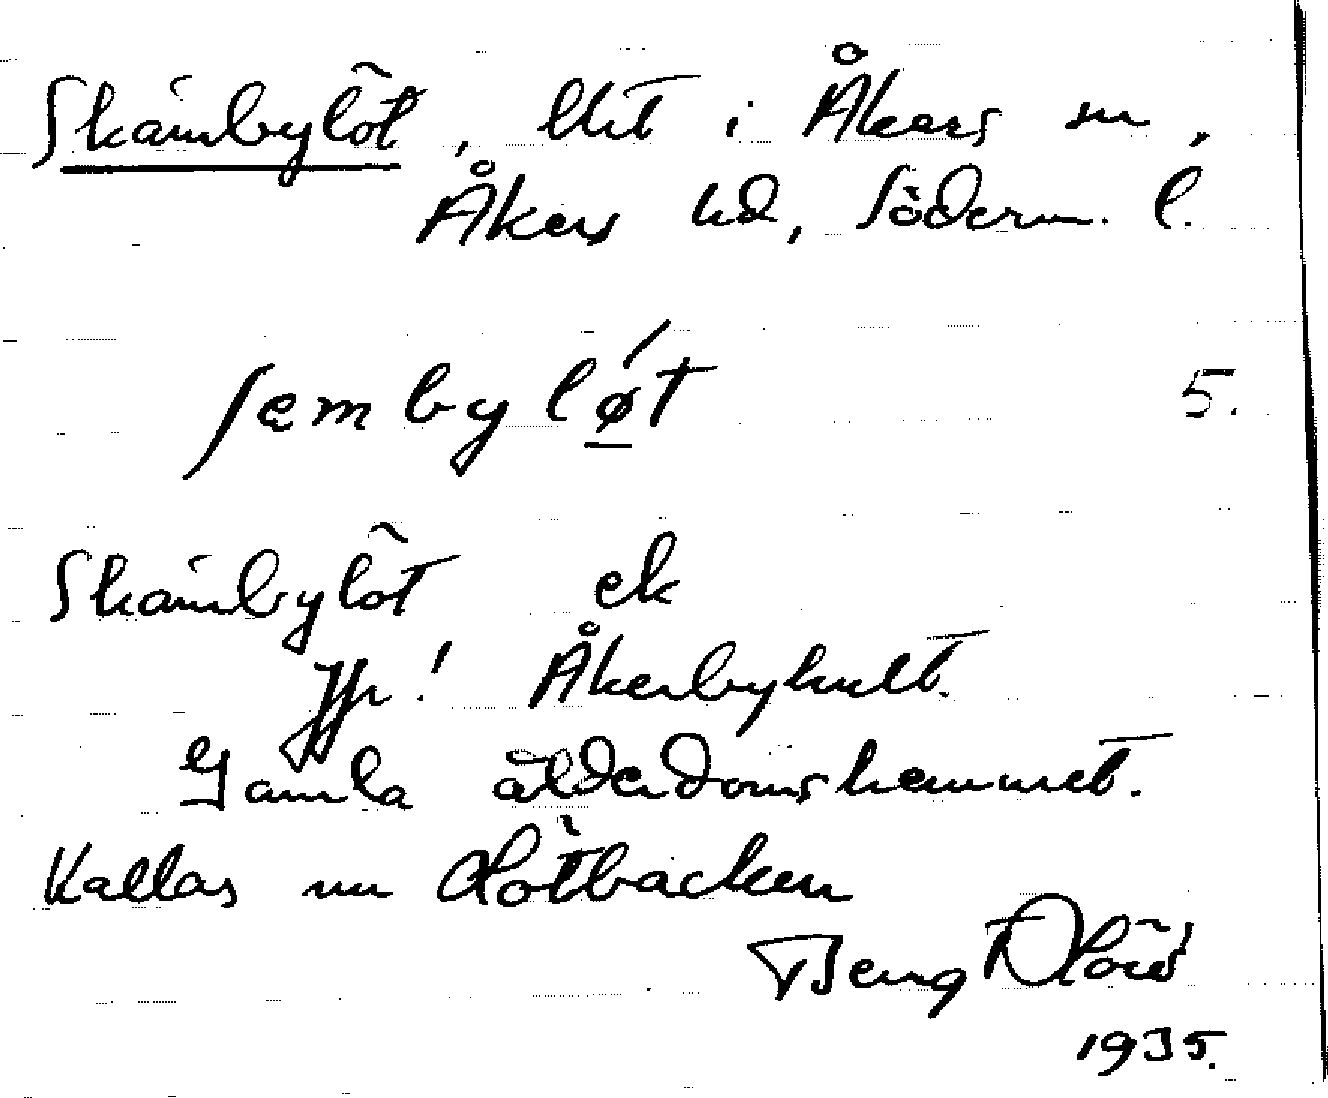 Skämbylöt, tht i Åkers sn,
Åkers hd, Söderm. l.
sembylǿt 5.
Skämbylöt ek
Jfr! Åkerbyhult.
Gamla ålderdomshemmet.
Kallas nu Lötbacken
Bengt
1935.